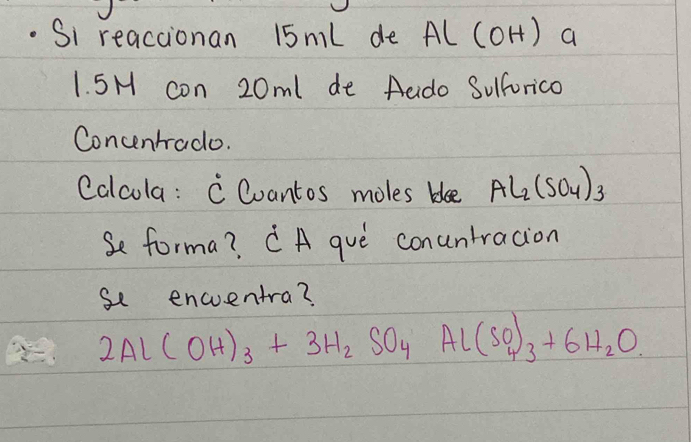 • Si reaccionan 15mL de AL (OH) a
1.5M con 20ml de Acido Sulfurico
Concentrado.
Calcula: ¿ Cuantos moles de AL2(SO4)3
Se forma? ¿A qué concentracion
se encuentra?
2AL(OH)3 + 3H2 SO4 AL(SO4)3 + 6H2O.